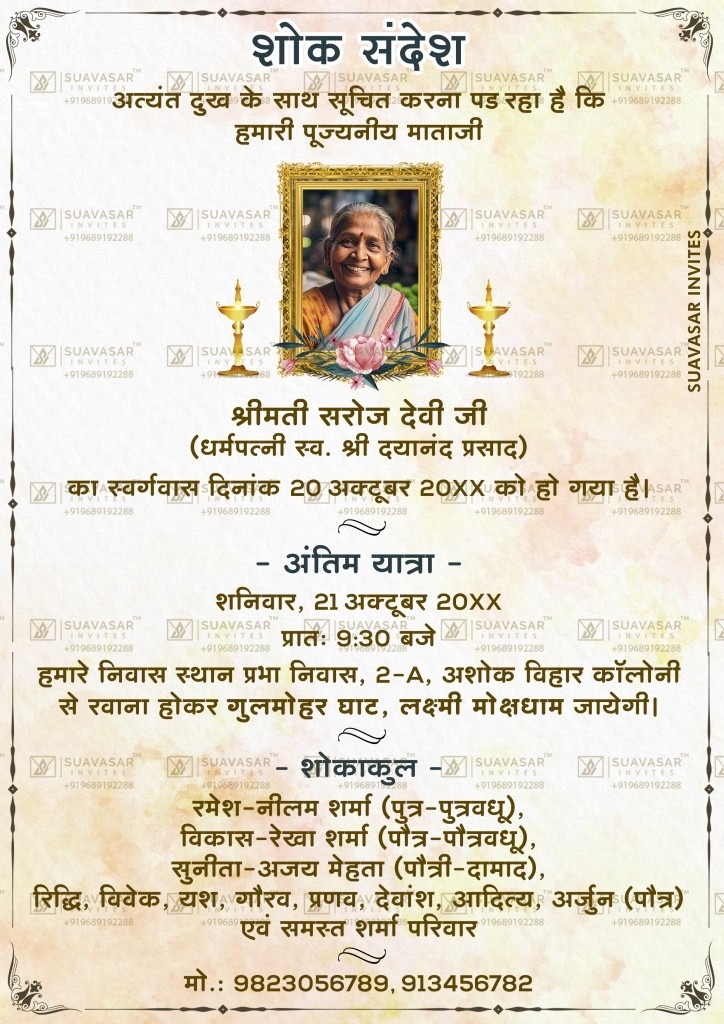 शोक संदेश
अत्यंत दुख के साथ सूचित करना पड रहा है कि
हमारी पूज्यनीय माताजी
श्रीमती सरोज देवी जी
(धर्मपत्नी स्व. श्री दयानंद प्रसाद)
का स्वर्गवास दिनांक 20 अक्टूबर 20XX को हो गया है।
- अंतिम यात्रा -
शनिवार, 21 अक्टूबर 20XX
प्रातः 9:30 बजे
हमारे निवास स्थान प्रभा निवास, 2-A, अशोक विहार कॉलोनी
से रवाना होकर गुलमोहर घाट, लक्ष्मी मोक्षधाम जायेगी।
- शोकाकुल -
रमेश-नीलम शर्मा (पुत्र-पुत्रवधू),
विकास-रेखा शर्मा (पौत्र-पौत्रवधू),
सुनीता-अजय मेहता (पौत्री-दामाद),
रिद्धि, विवेक, यश, गौरव, प्रणव, देवांश, आदित्य, अर्जुन (पौत्र)
एवं समस्त शर्मा परिवार
मो.: 9823056789, 913456782
SUAVASAR INVITES
SUAVASAR™
INVITES
+919689192288